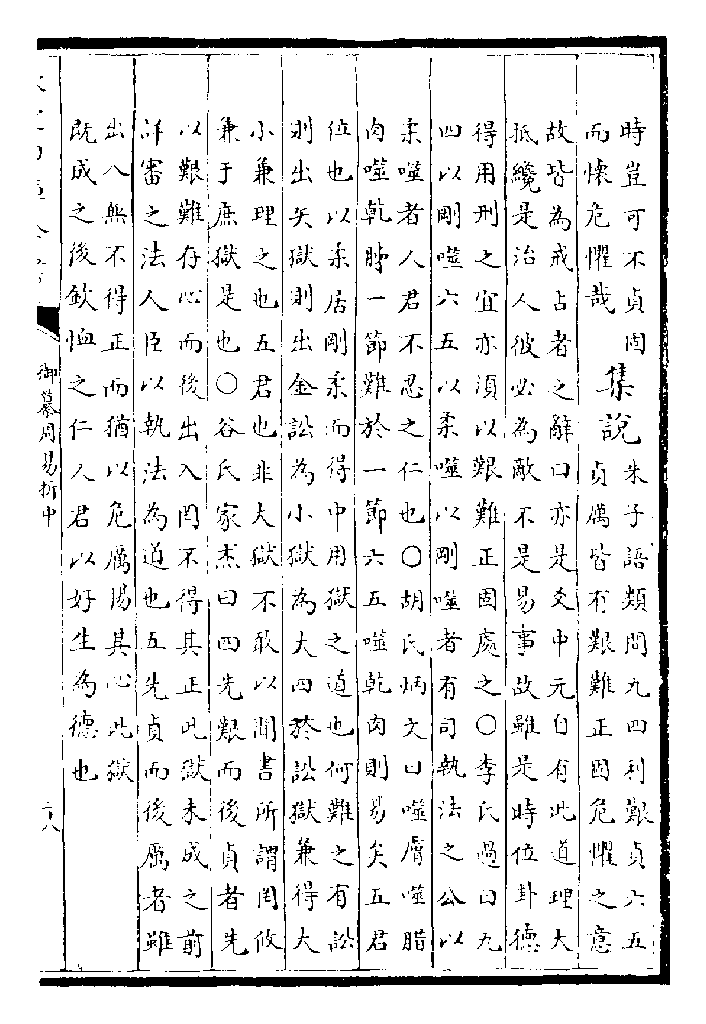 時豈可不貞固
而懷危懼哉
集說
朱子語類問九四利艱貞六五
貞厲皆有艱難正固危懼之意
故皆為戒占者之辭曰亦是爻中元自有此道理大
抵纔是治人彼必為敵不是易事故雖是時位卦德
得用刑之宜亦須以艱難正固處之〇李氏過曰九
四以剛噬六五以柔噬以剛噬者有司執法之公以
柔噬者人君不忍之仁也〇胡氏炳文曰噬膚噬腊
肉噬乾胏一節難於一節六五噬乾肉則易矣五君
位也以柔居剛柔而得中用獄之道也何難之有訟
則出矢獄則出金訟為小獄為大四於訟獄兼得大
小兼理之也五君也非大獄不敢以聞書所謂罔攸
兼于庶獄是也〇谷氏家杰曰四先艱而後貞者先
以艱難存心而後出入罔不得其正此獄未成之前
詳審之法人臣以執法為道也五先貞而後厲者雖
出入無不得正而猶以危厲惕其心此獄
既成之後欽恤之仁人君以好生為德也
御纂周易折中